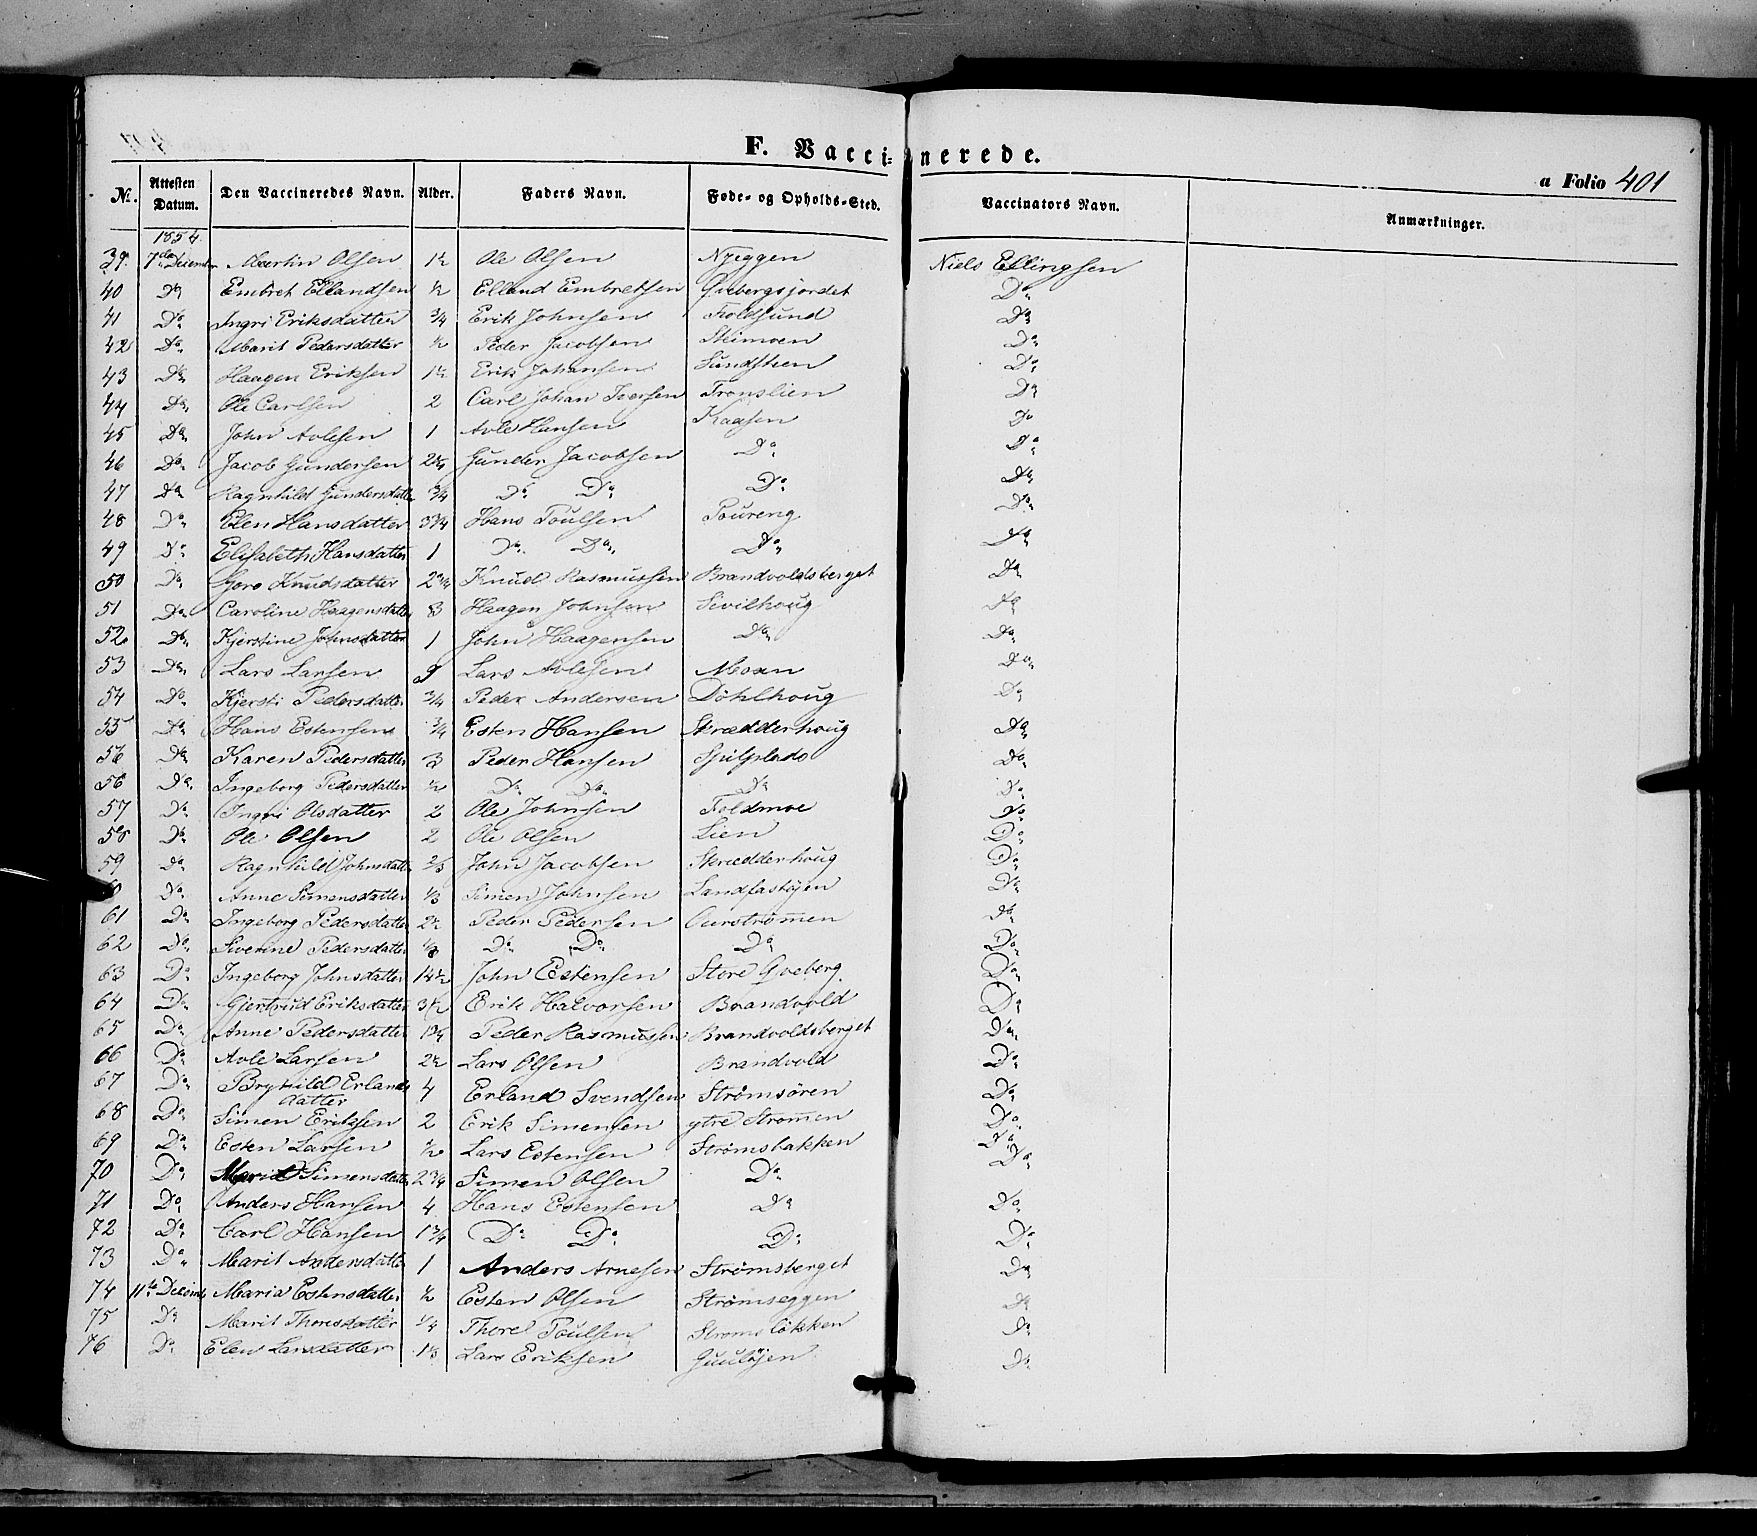 F. Vaccinerede.
a Folio 401
№. Attesten Datum. Den Vaccineredes Navn. Alder. Faders Navn. Føde- og Opholds-Sted. Vaccinators Navn. Anmærkninger.
1854.
39. 7de December Martin Olsen 1½ Ole Olsen Nyeggen Niels Ellingsen
40 Do Embret Ellandsen ½ Elland Embretsen Qvebergsjordet Do
41 Do Ingri Eriksdatter ¾ Erik Johnsen Foldsund Do
42 Do Marit Pedersdatter ½ Peder Jacobsen Steimoen Do
43 Do Haagen Eriksen 1½ Erik Johansen Sundsteen Do
44 Do Ole Carlsen 2 Carl Johan Iversen Tronslien Do
45 Do John Avlesen 1 Avle Hansen Kaasen Do
46 Do Jacob Gundersen Gunder Jacobsen Do Do
47 Do Ragnhild Gundersdatter ¾ Do Do Do Do
48 Do Elen Hansdatter 3¾ Hans Poulsen Poureng Do
49 Do Elisabeth Hansdatter 1 Do Do Do Do
50 Do Goro Knudsdatter 2¾ Knud Rasmussen Brandvoldsberget Do
51 Do Caroline Haagensdatter 3 Haagen Johnsen Sivilhoug Do
52 Do Kjerstine Johnsdatter 1 John Haagensen Do Do
53 Do Lars Larsen 9 Lars Avlesen Moen Do
54 Do Kjersti Pedersdatter ¾ Peder Andersen Döhlhoug Do
55 Do Hans Estensen ¾ Esten Hansen Skrædderhoug Do
56 Do Karen Pedersdatter 3 Peder Hansen Do
56 Do Ingeborg Pedersdatter ½ Do Do Do Do
57 Do Ingri Olsdatter 2 Ole Johnsen Foldmoe Do
58 Do Ole Olsen 2 Ole Olsen Lien Do
59 Do Ragnhild Johnsdatter ⅔ John Jacobsen Skrædderhoug Do
Do Anne Simensdatter ⅓ Simen Johnsen Landfastöjen Do
61 Do Ingeborg Pedersdatter 2½ Peder Pedersen Ourströmen Do
62 Do Siverine Pedersdatter Do Do Do Do
63 Do Ingeborg Johnsdatter 14½ John Estensen Store Qveberg Do
64 Do Gjertrud Eriksdatter 3½ Erik Halvorsen Brandvold Do
65 Do Anne Pedersdatter 1¾ Peder Rasmussen Brandvoldsberget Do
66 Do Avle Larsen 2½ Lars Olsen Brandvold Do
67 Do Brynild Erlands 4 Erland Svendsen Strömsören Do
datter
68 Do Simen Eriksen 2 Erik Simensen ytre Strömen Do
69 Do Esten Larsen ½ Lars Estensen Strömsbakken Do
70 Do Marit Simensdatter 2¾ Simen Olsen Do Do
71 Do Anders Hansen 4 Hans Estensen Do Do
72 Do Carl Hansen 1¾ Do Do Do Do
73 Do Marit Andersdatter 1 Anders Arnesen Strömsberget Do
74 11te Decemb. Maria Estensdatter ½ Esten Olsen Strömseggen Do
75 Do Marit Thoresdatter ¼ Thore Poulsen Strömslökken Do
76 Do Elen Larsdatter 1⅓ Lars Eriksen Guulöjen Do